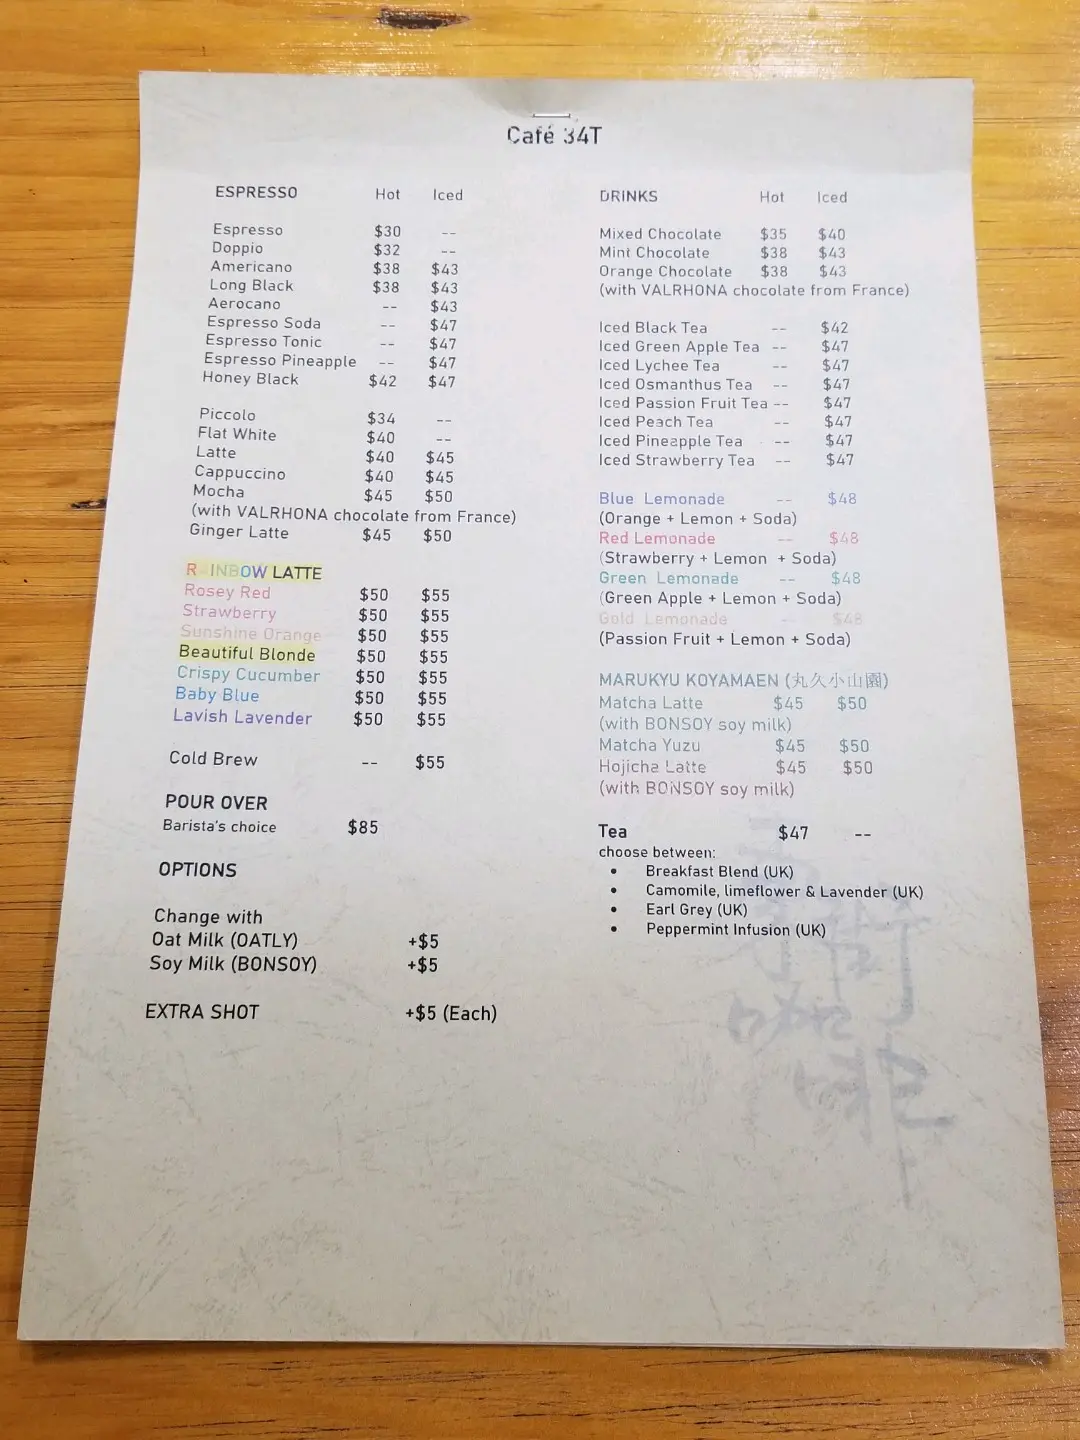 Café 34T
ESPRESSO Hot Iced
Espresso $30 --
Doppio $32 --
Americano $38 $43
Long Black $38 $43
Aerocano -- $43
Espresso Soda -- $47
Espresso Tonic -- $47
Espresso Pineapple -- $47
Honey Black $42 $47
Piccolo $34 --
Flat White $40 --
Latte $40 $45
Cappuccino $40 $45
Mocha $45 $50
(with VALRHONA chocolate from France)
Ginger Latte $45 $50
RAINBOW LATTE
Rosey Red $50 $55
Strawberry $50 $55
Sunshine Orange $50 $55
Beautiful Blonde $50 $55
Crispy Cucumber $50 $55
Baby Blue $50 $55
Lavish Lavender $50 $55
Cold Brew -- $55
POUR OVER
Barista's choice $85
OPTIONS
Change with
Oat Milk (OATLY) +$5
Soy Milk (BONSOY) +$5
EXTRA SHOT +$5 (Each)
DRINKS Hot Iced
Mixed Chocolate $35 $40
Mint Chocolate $38 $43
Orange Chocolate $38 $43
(with VALRHONA chocolate from France)
Iced Black Tea -- $42
Iced Green Apple Tea -- $47
Iced Lychee Tea -- $47
Iced Osmanthus Tea -- $47
Iced Passion Fruit Tea -- $47
Iced Peach Tea -- $47
Iced Pineapple Tea -- $47
Iced Strawberry Tea -- $47
Blue Lemonade -- $48
(Orange + Lemon + Soda)
Red Lemonade -- $48
(Strawberry + Lemon + Soda)
Green Lemonade -- $48
(Green Apple + Lemon + Soda)
Gold Lemonade -- $48
(Passion Fruit + Lemon + Soda)
MARUKYU KOYAMAEN (丸久小山園)
Matcha Latte $45 $50
(with BONSOY soy milk)
Matcha Yuzu $45 $50
Hojicha Latte $45 $50
(with BONSOY soy milk)
Tea $47 --
choose between:
• Breakfast Blend (UK)
• Camomile, limeflower & Lavender (UK)
• Earl Grey (UK)
• Peppermint Infusion (UK)